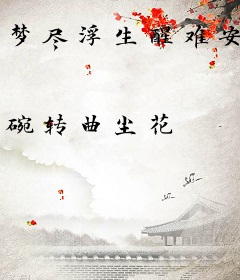 梦尽浮生醒难安
碗转曲尘花